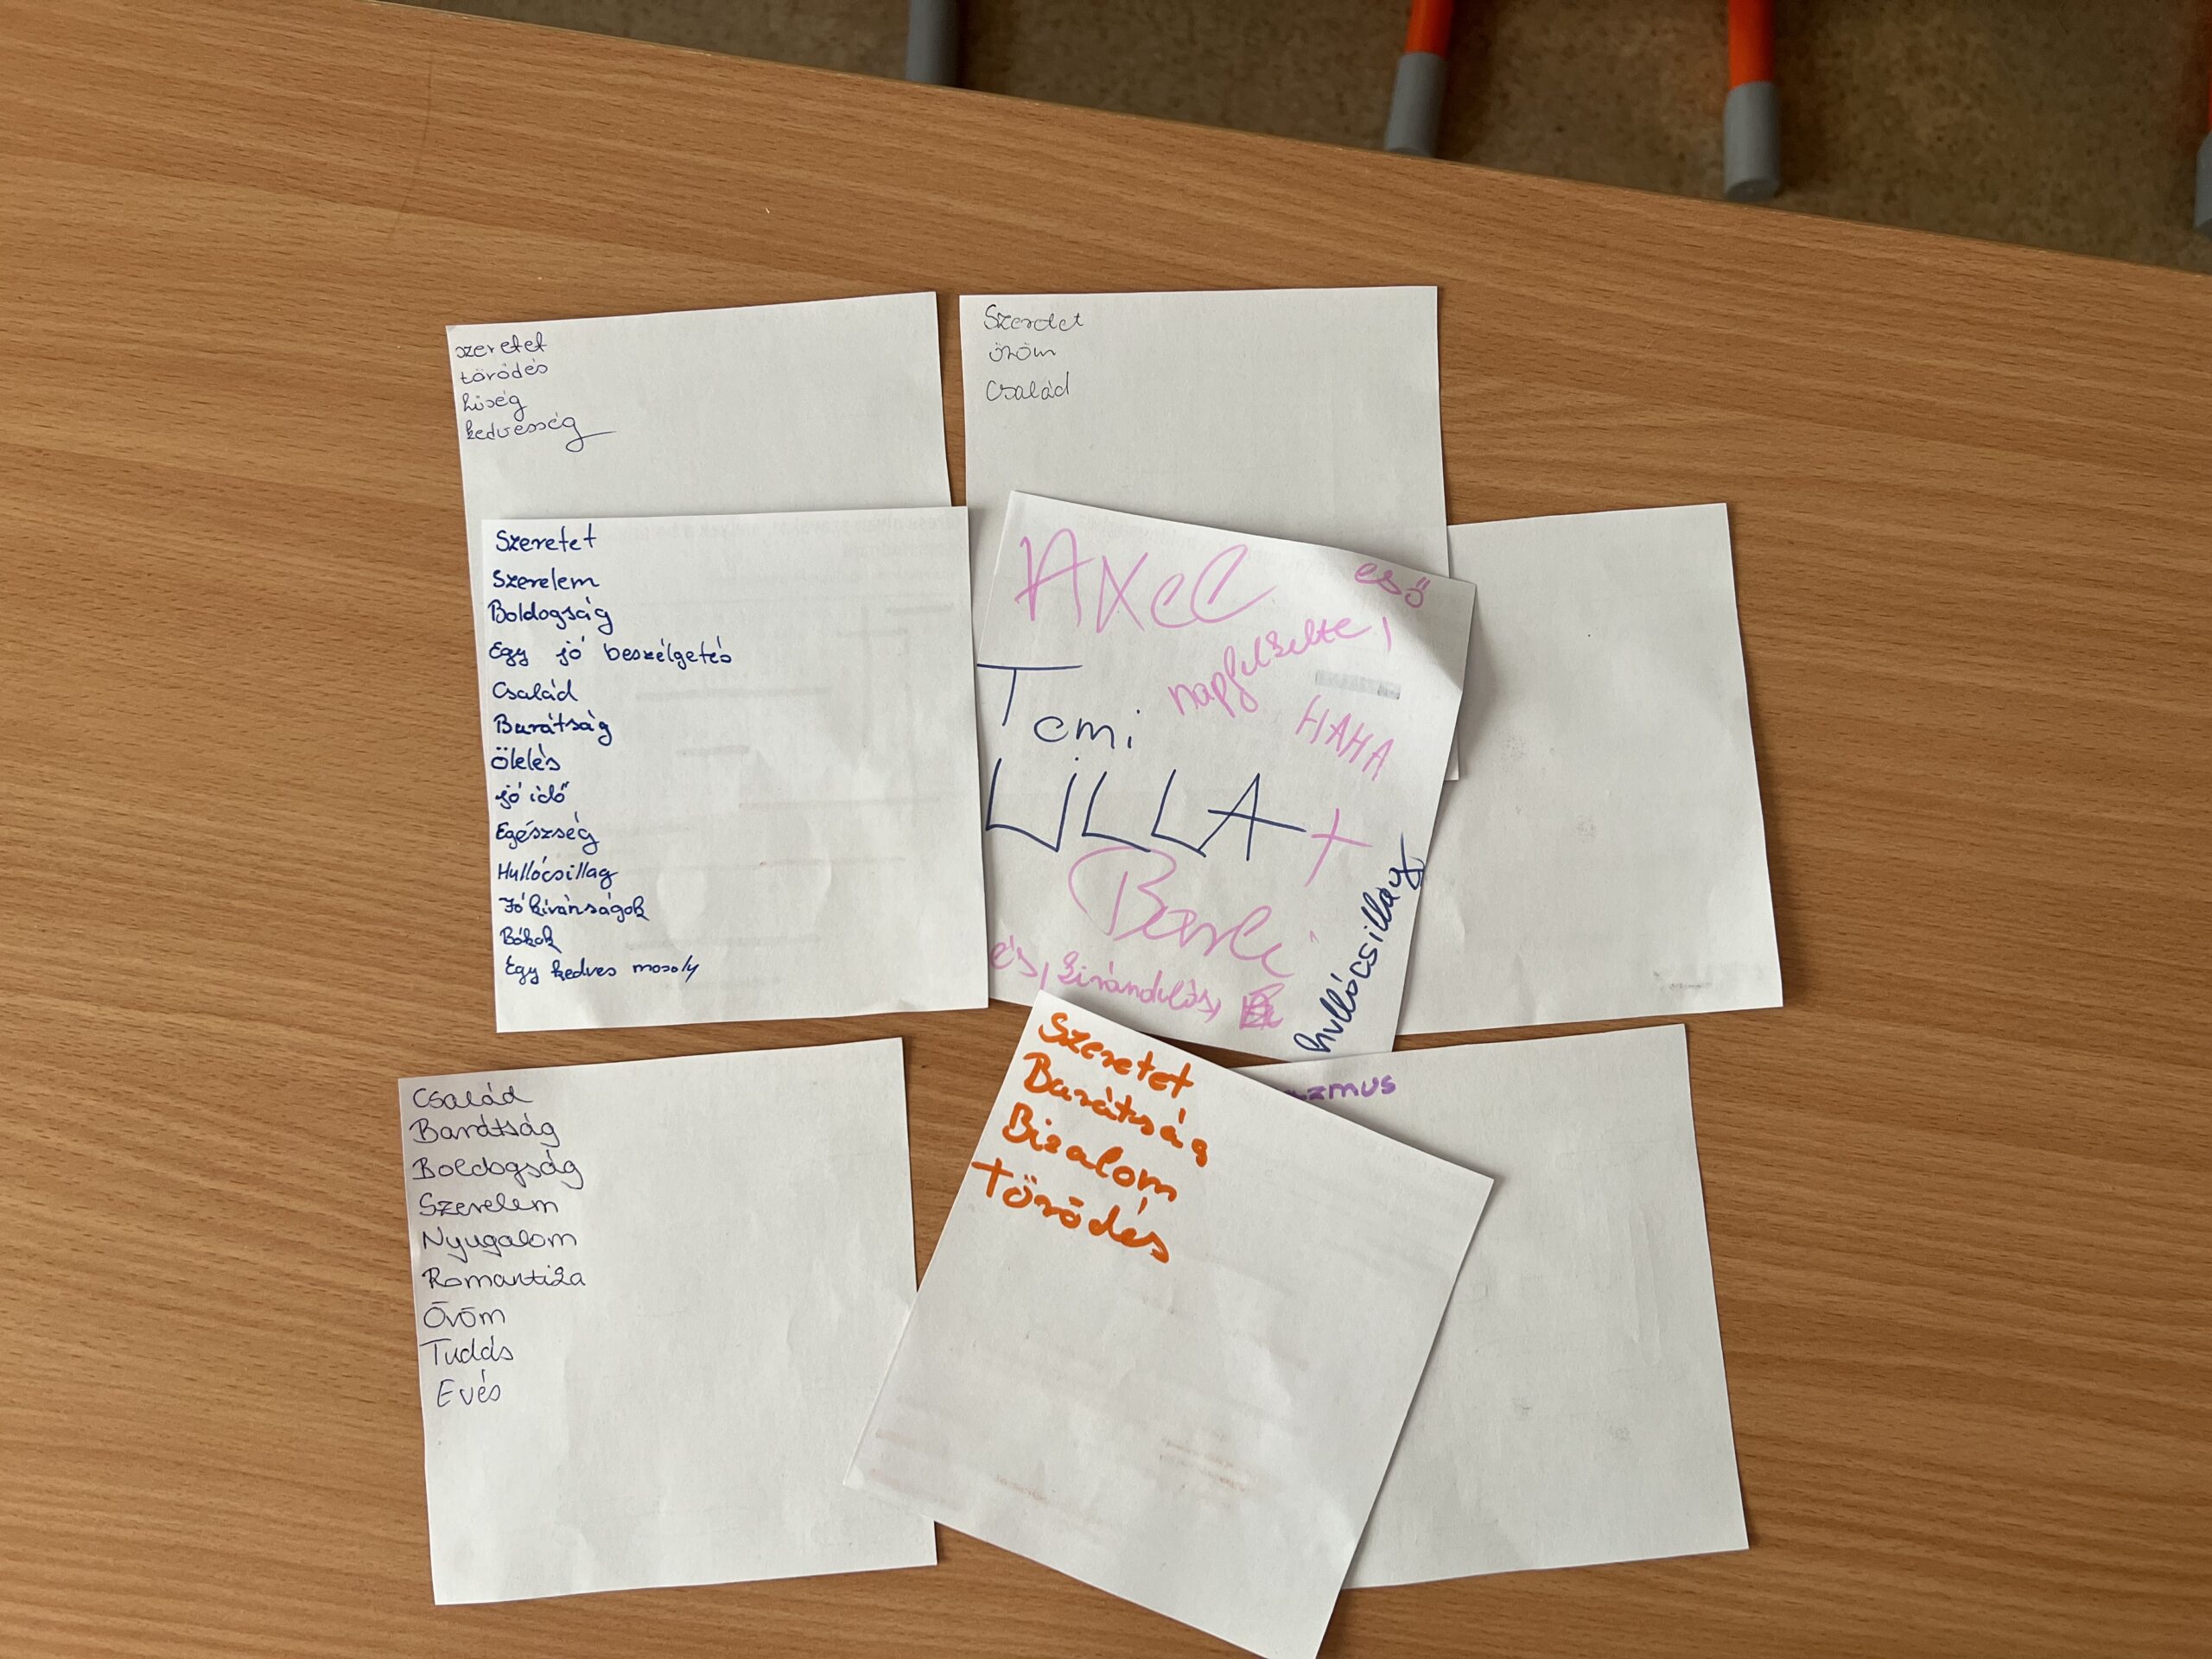 szeretet
törödés
hűség
kedvesség
Szeretet
öröm
Család
Szeretet
Szerelem
Boldogság
Egy jó beszélgetés
Család
Barátság
Ölelés
jó idő
Egészség
Hullócsillag
Jó kívánságok
Bókok
Egy kedves mosoly
AXel
eső
napfelkelte,
Temi
HAHA
LILLA +
és, kirándulás,
hullócsillag
Család
Barátság
Boldogság
Szerelem
Nyugalom
Romantika
Öröm
Tudás
Evés
Szeretet
Barátság
Bizalom
Törődés
izmus